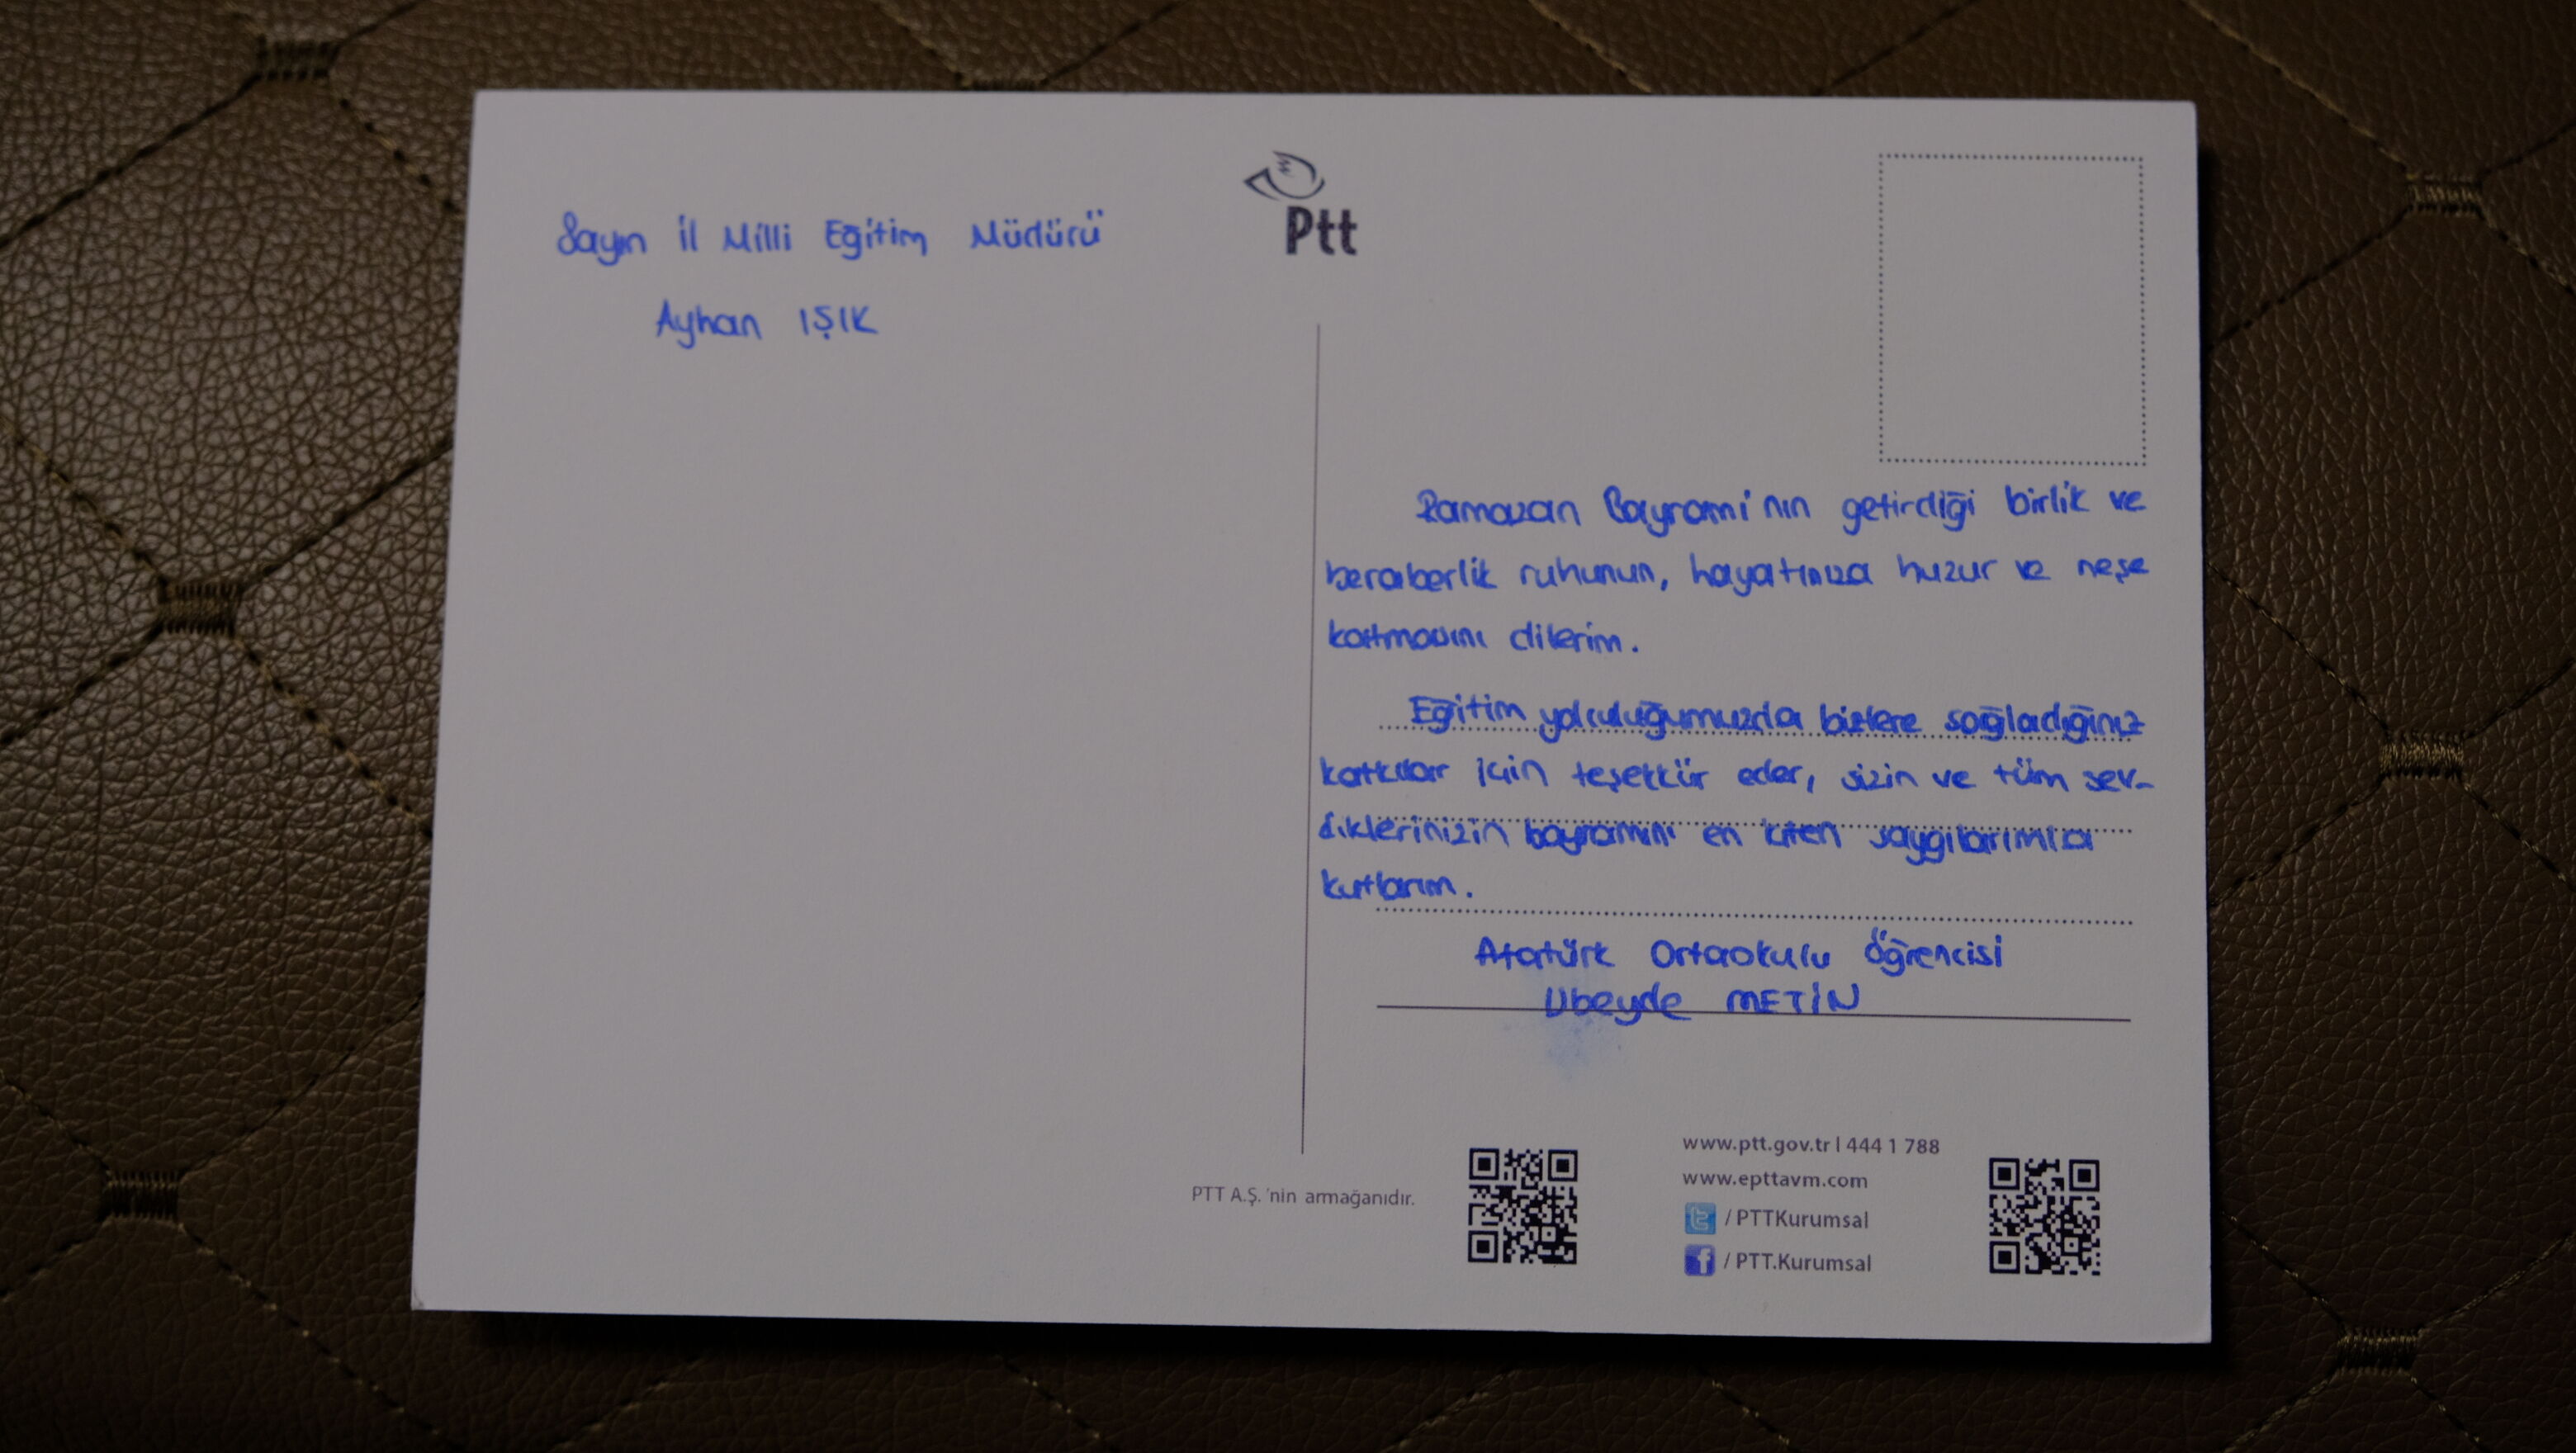 Sayın İl Milli Eğitim Müdürü
Ayhan IŞIK
Ptt
Ramazan Bayramı'nın getirdiği birlik ve
beraberlik ruhunun, hayatınıza huzur ve neşe
katmasını dilerim.
Eğitim yolculuğumuzda bizlere sağladığınız
katkılar için teşekkür eder, sizin ve tüm sev-
diklerinizin bayramını en içten saygılarımla
kutlarım.
Atatürk Ortaokulu Öğrencisi
Ubeyde METİN
PTT A.Ş. 'nin armağanıdır.
www.ptt.gov.tr | 444 1 788
www.epttavm.com
/ PTTKurumsal
/ PTT.Kurumsal